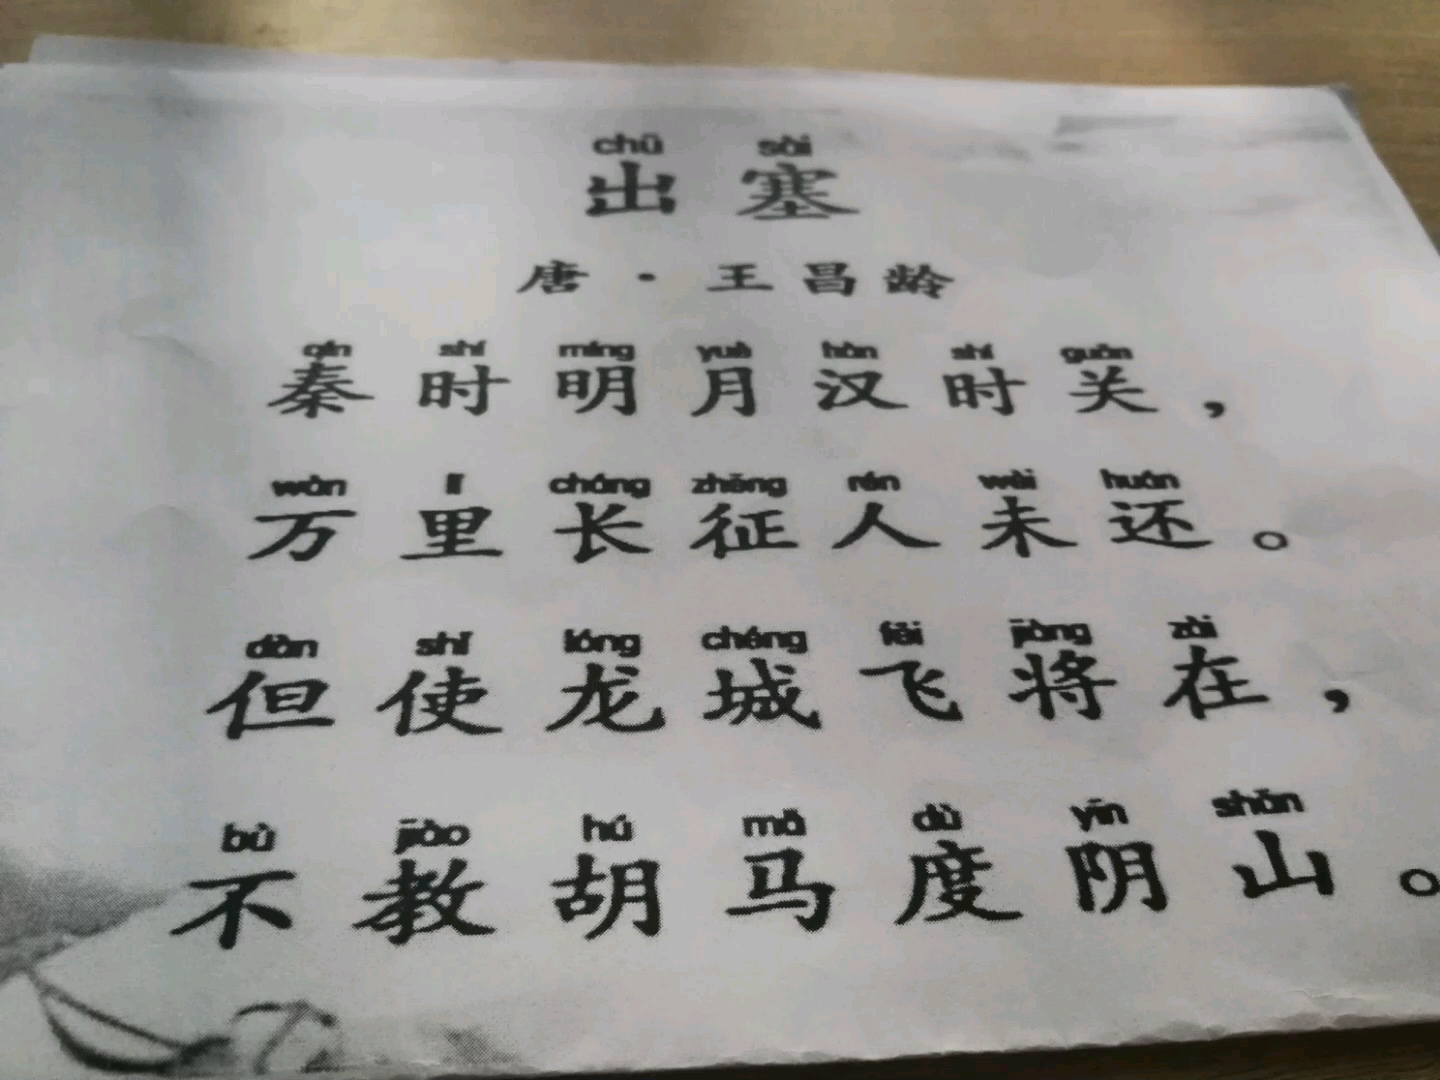 chū sài
出 塞
唐 · 王 昌 龄
qín shí míng yuè hàn shí guān
秦 时 明 月 汉 时 关 ，
wàn lǐ cháng zhēng rén wèi huán
万 里 长 征 人 未 还 。
dàn shǐ lóng chéng fēi jiàng zài
但 使 龙 城 飞 将 在 ，
bù jiào hú mǎ dù yīn shān
不 教 胡 马 度 阴 山 。